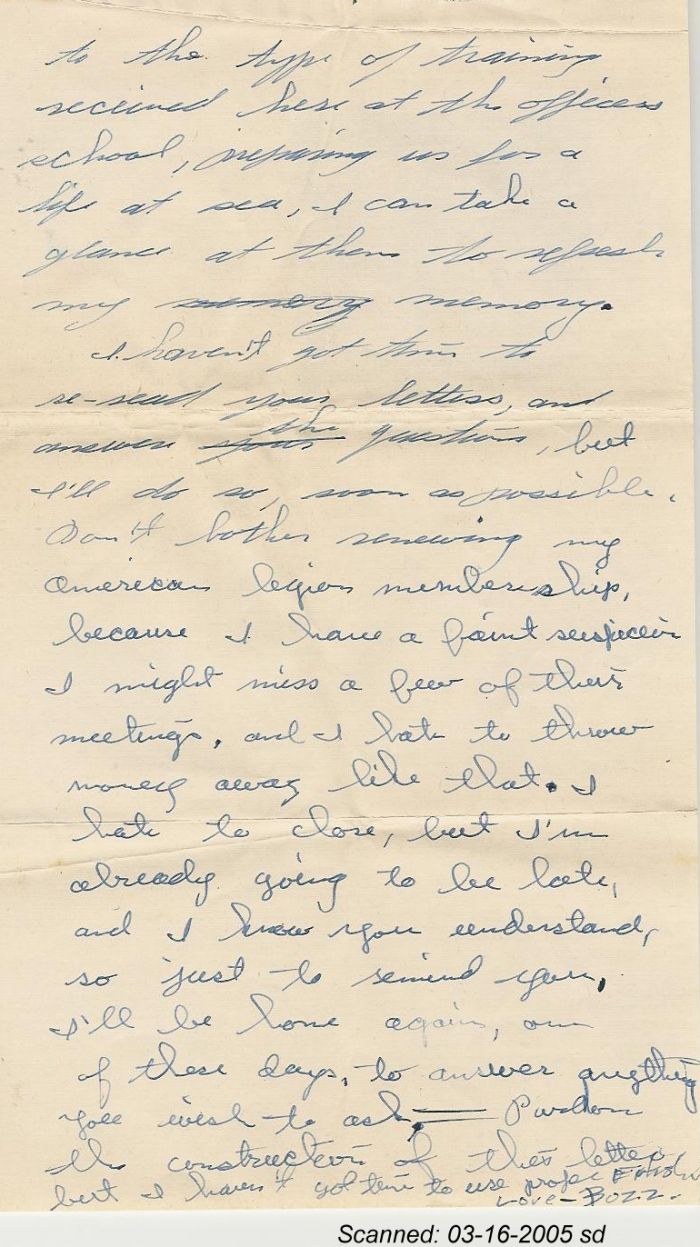 to the type of training
recieved here at the officers
school, preparing us for a
life at sea, I can take a
glance at them to refresh
my memory memory.
I haven't got time to
re-read your letters, and
answer your the questions, but
I'll do so, soon as possible.
Don't bother renewing my
American legion membership,
because I have a faint suspicion
I might miss a few of their
meetings, and I hate to throw
money away like that. I
hate to close, but I'm
already going to be late,
and I know you understand,
so just to remind you,
I'll be home again, one
of these days, to answer anything
you wish to ask, — Pardon
the construction of this letter,
but I haven't got time to use proper
Love - Bozz.
Scanned: 03-16-2005 sd